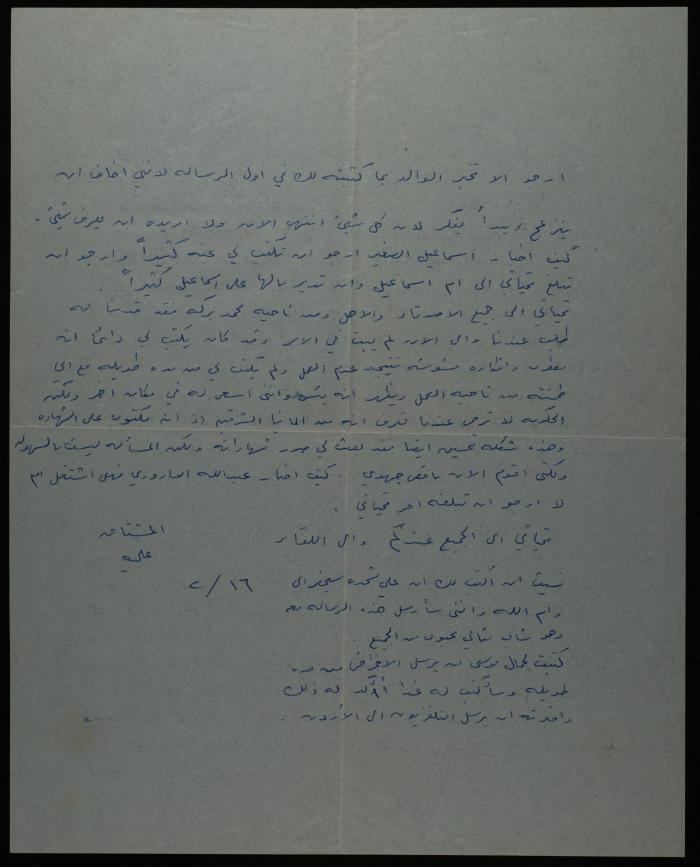 ارجو الا تخبر الوالد بما كتبته لك في اول الرساله لانني اخاف ان
ينزعج ويبدأ يفكر لان كل شيئ انتهى الان ولا اريده ان يعرف شيئ.
كيف اخبار اسماعيل الصغير ارجو ان تكتب لي عنه كثيراً وارجو ان
تبلغ تحياتي الى ام اسماعيل وان تدير بالها على اسماعيل كثيراً.
تحياتي الى جميع الاصدقاء والاهل ومن ناحيه محمد بركه فقد قدمنا له
طلب عندنا والى الان لم يبت في الامر وقد كان يكتب لي دائما انه
وافكاره مشوشه نتيجه عدم العمل ولم يكتب لي من مده طويله مع اني
طمنته من ناحيه العمل ويظهر انه وانني اسعى له في مكان اخر ولكن
الحكومه لا ترضى عندما تعرف انه من المانيا الشرقيه اذ انه مكتوب على الشهاده
وهذه مشكله تحسين ايضا فقد بعث لي صور شهاداته ولكن المسأله ليست بالسهوله
ولكني اقوم الان باقصى جهودي. كيف اخبار عبدالله الساروري فهل اشتغل ام
لا ارجو ان تبلغه احر تحياتي.
تحياتي الى الجميع عندكم والى اللقاء
المشتاق
علي
١٦/٢
نسيت ان اكتب لك ان علي شحده سيحضر الى
رام الله وانني سأرسل هذه الرساله معه
وهو شاب مثالي محبوب من الجميع.
كتبت لجمال موسى ان يرسل الاغراض من مده
طويله وسأكتب له غدا أؤكد له ذلك
واخبرته ان يرسل التلفزيون الى الأردن.